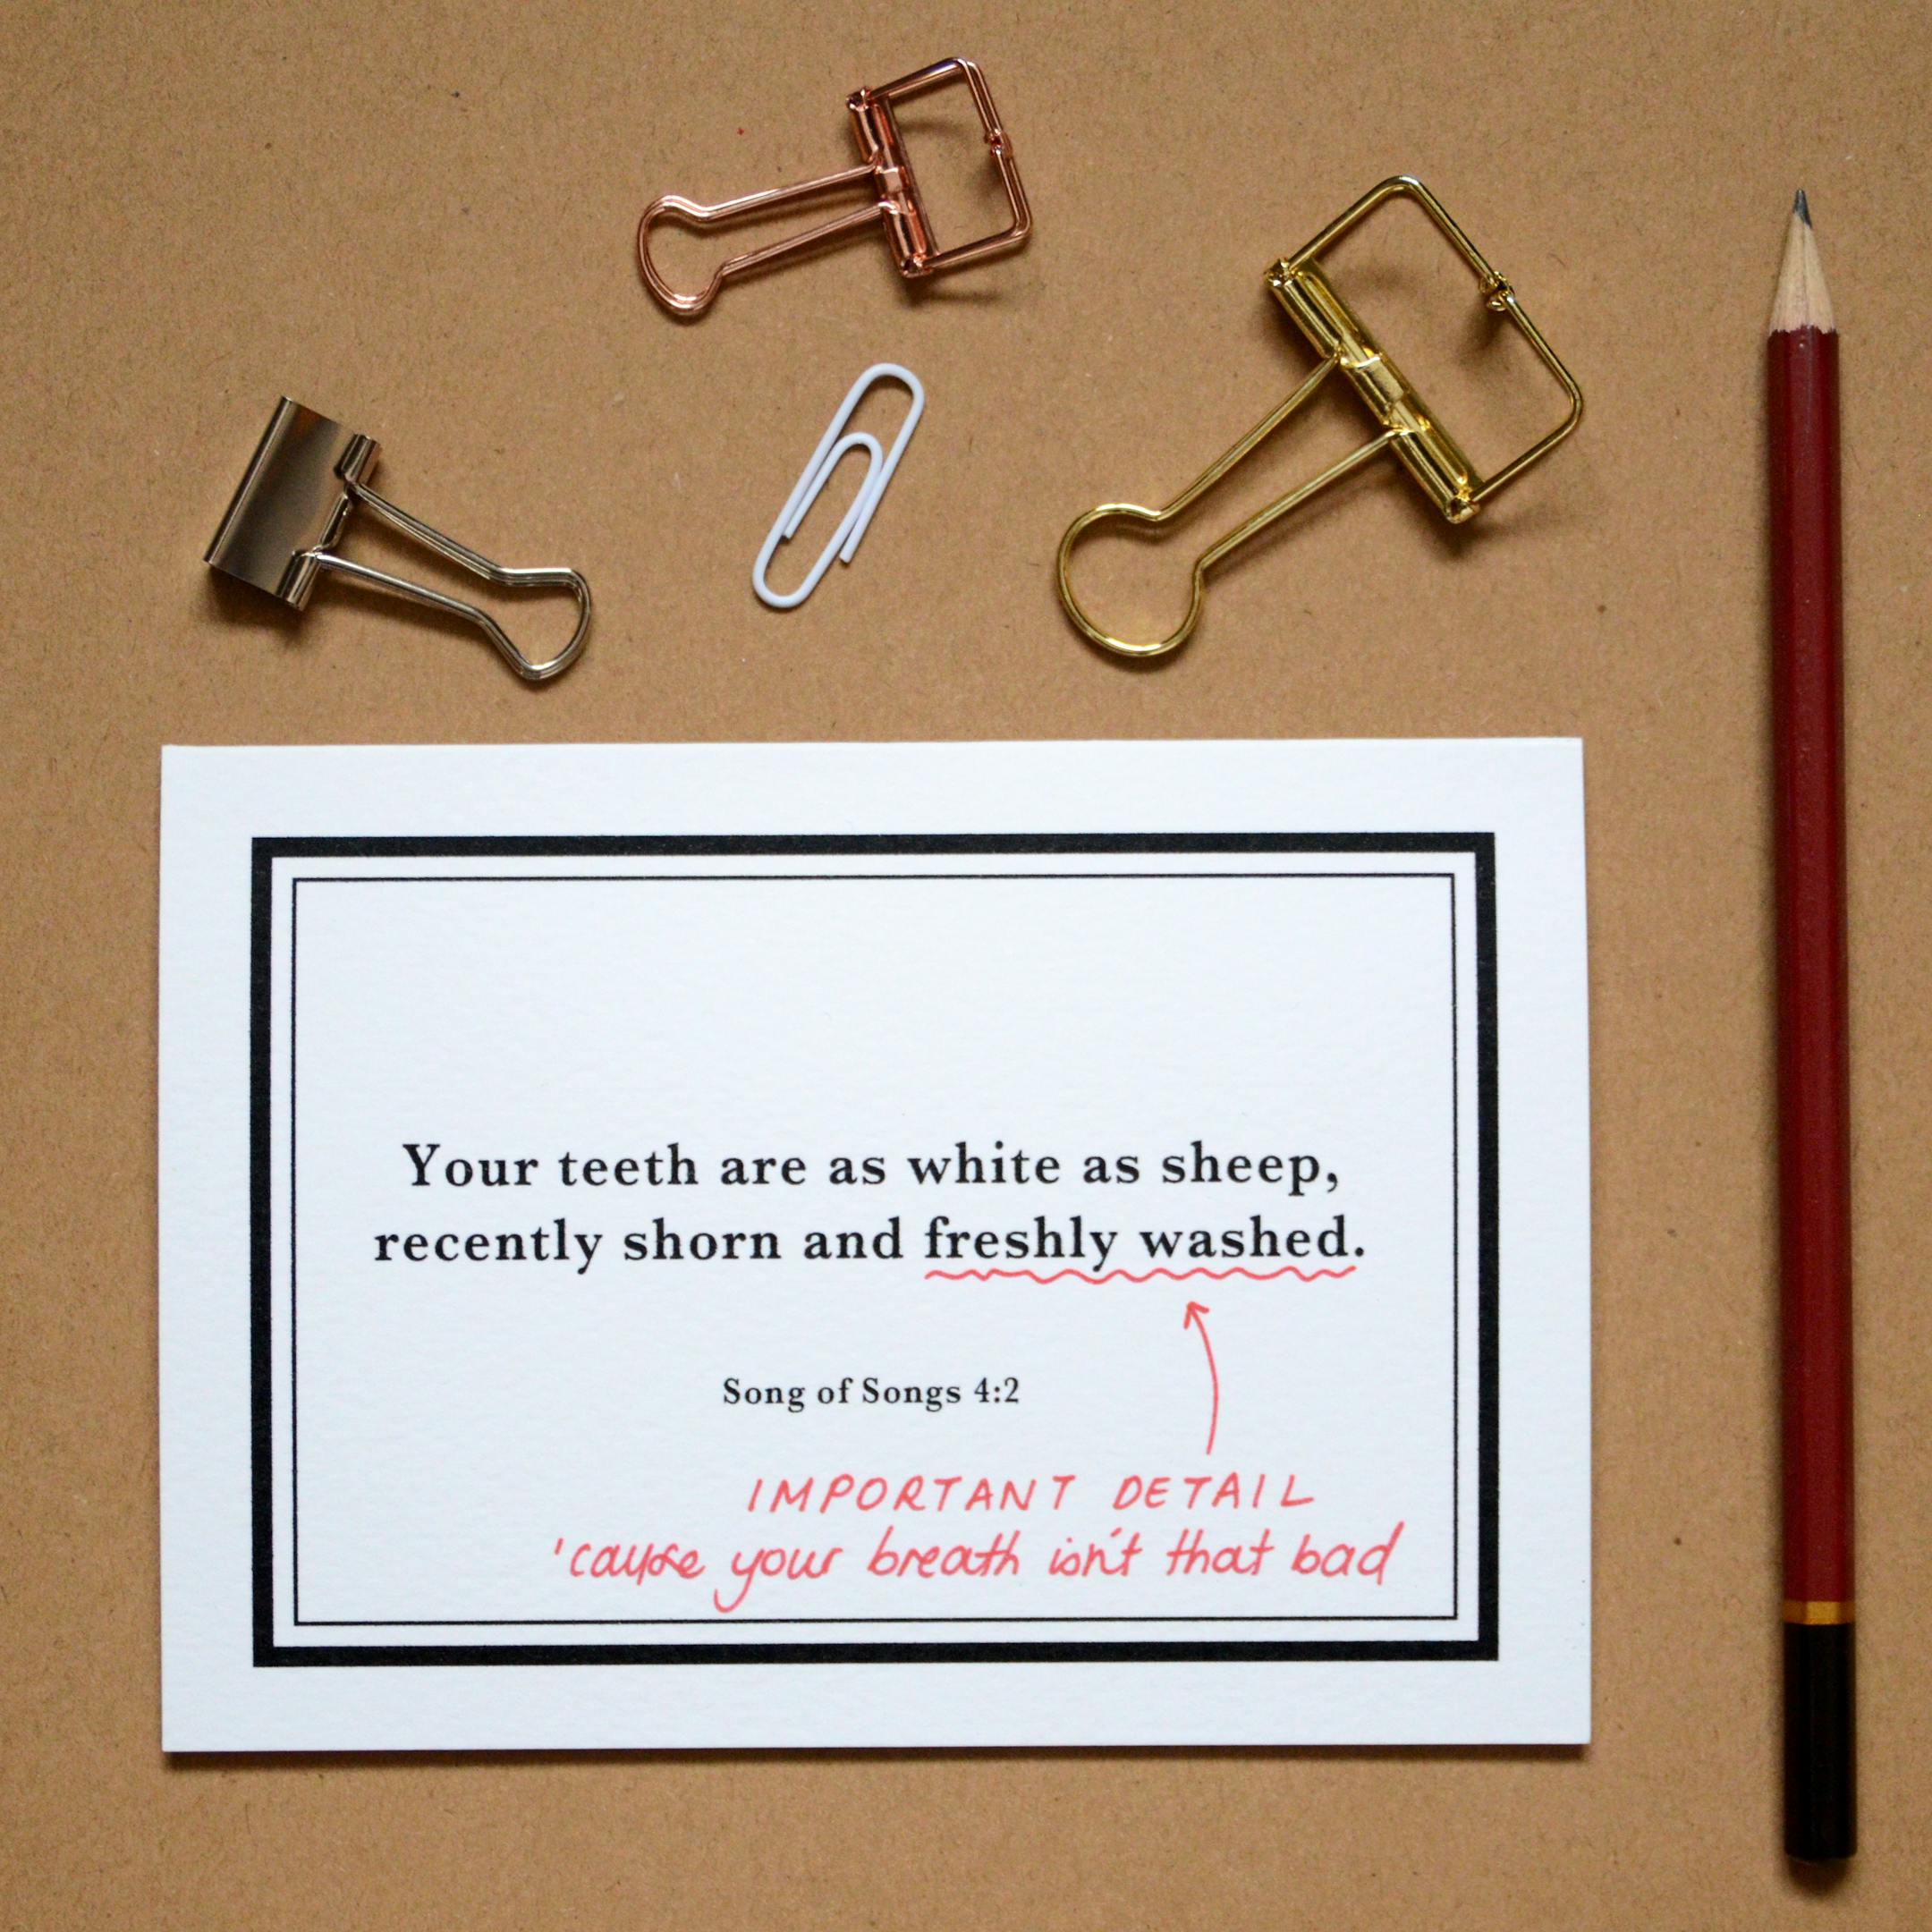 Your teeth are as white as sheep,
recently shorn and freshly washed.
Song of Songs 4:2
IMPORTANT DETAIL
'cause your breath isn't that bad